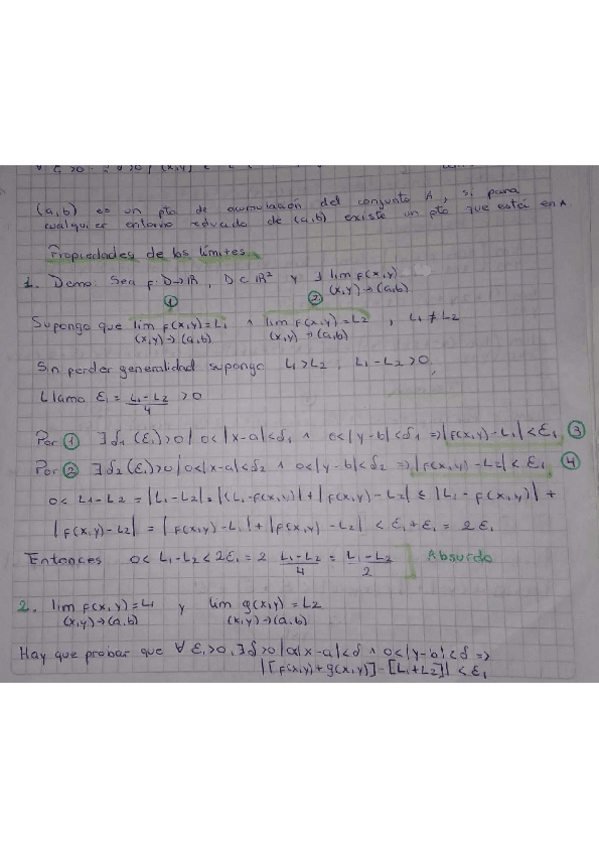 (a,b) es un pto de acumulación del conjunto A, si para
cualquier entorno reducido de (a,b) existe un pto que está en A.
Propiedades de los límites
1. Demo Sea f: D→R, D⊂R² y ∃ lim f(x,y)
(x,y)→(a,b)
① ②
Supongo que lim f(x,y)=L₁ ∧ lim f(x,y)=L₂, L₁≠L₂
(x,y)→(a,b) (x,y)→(a,b)
Sin perder generalidad supongo L₁>L₂, L₁-L₂>0
Llamo ε₁ = (L₁-L₂)/4 >0
Por ① ∃δ₁(ε₁)>0 | 0<|x-a|<δ₁ ∧ 0<|y-b|<δ₁ ⇒ |f(x,y)-L₁|<ε₁ ③
Por ② ∃δ₂(ε₁)>0 | 0<|x-a|<δ₂ ∧ 0<|y-b|<δ₂ ⇒ |f(x,y)-L₂|<ε₁ ④
0< L₁-L₂ = |L₁-L₂| = |(L₁-f(x,y)|+|f(x,y)-L₂| ≤ |L₁-f(x,y)| +
|f(x,y)-L₂| = |f(x,y)-L₁|+|f(x,y)-L₂| < ε₁+ε₁ = 2ε₁
Entonces 0<L₁-L₂<2ε₁ = 2 (L₁-L₂)/4 = (L₁-L₂)/2 Absurdo
2. lim f(x,y)=L₁ y lim g(x,y)=L₂
(x,y)→(a,b) (x,y)→(a,b)
Hay que probar que ∀ ε₁>0, ∃δ>0 | 0<|x-a|<δ ∧ 0<|y-b|<δ ⇒
|[f(x,y)+g(x,y)]-[L₁+L₂]| <ε₁